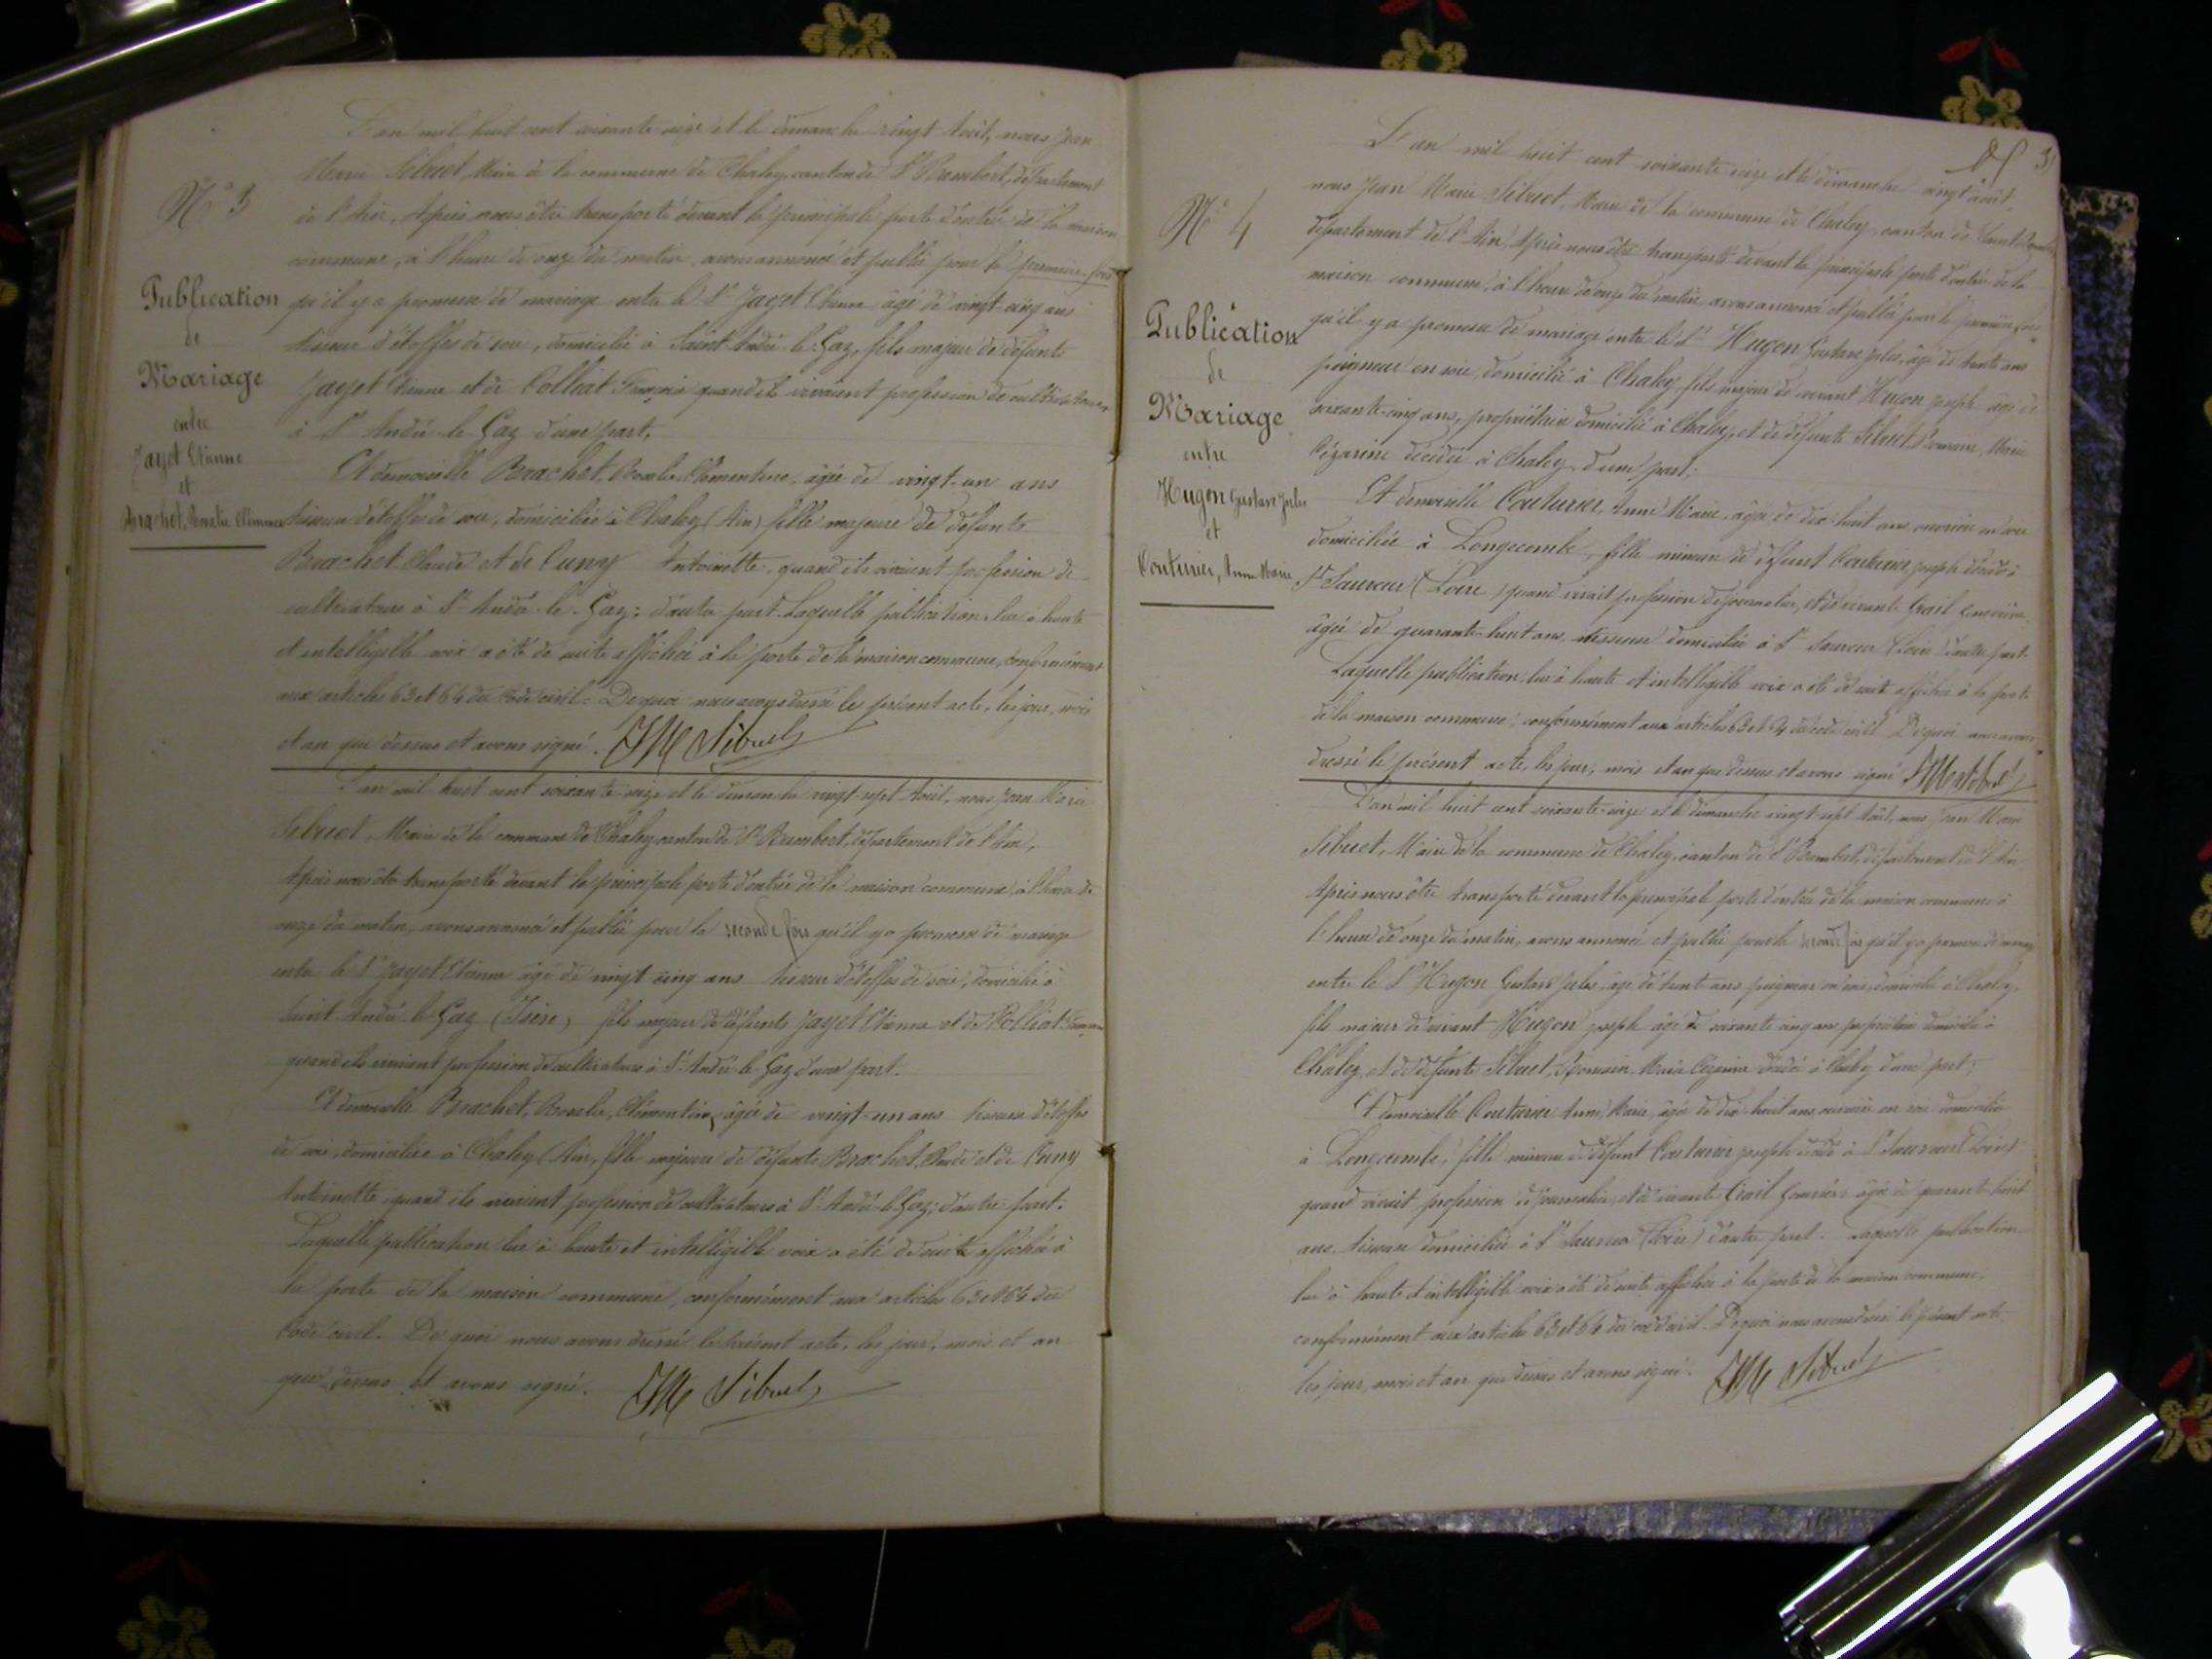 L'an mil huit cent soixante seize et le dimanche vingt Août, nous Jean
Marie Sibuet, Maire de la commune de Chaley, canton de St Rambert, département
de l'Ain, Après nous être transporté devant la principale porte d'entrée de la maison
commune, à l'heure de onze du matin, avons annoncé et publié pour la première fois
qu'il y a promesse de mariage entre le Sr Jayet Etienne âgé de vingt-cinq ans
tisseur d'étoffes de soie, domicilié à Saint-André-le-Gaz, fils majeur de défunts
Jayet Etienne et de Colliat quand ils vivaient profession de cultivateurs
à St André-le-Gaz d'une part.
Et demoiselle Brachet, Rosalie Clémentine, âgée de vingt-un ans
tisseuse d'étoffes de soie, domiciliée à Chaley (Ain) fille majeure de défunts
Brachet Claude et de Cuny Antoinette, quand ils vivaient profession de
cultivateurs à St André-le-Gaz; d'autre part. Laquelle publication lue à haute
et intelligible voix a été de suite affichée à la porte de la maison commune, conformément
aux articles 63 et 64 du Code civil. De quoi nous avons dressé le présent acte, les jour, mois
et an que dessus et avons signé. JM Sibuet
N° 3
Publication
de
Mariage
entre
Jayet Etienne
et
Brachet, Rosalie
L'an mil huit cent soixante seize et le dimanche vingt-sept Août, nous Jean Marie
Sibuet, Maire de la commune de Chaley canton de St Rambert, département de l'Ain,
Après nous être transporté devant la principale porte d'entrée de la maison commune, à l'heure de
onze du matin, avons annoncé et publié pour la seconde fois qu'il y a promesse de mariage
entre le Sr Jayet Etienne âgé de vingt cinq ans tisseur d'étoffes de soie, domicilié à
Saint-André-le-Gaz (Isère) fils majeur de défunts Jayet Etienne et de Colliat
quand ils vivaient profession de cultivateurs à St André-le-Gaz d'une part.
Et demoiselle Brachet, Rosalie, Clémentine, âgée de vingt-un ans tisseuse d'étoffes
de soie, domiciliée à Chaley (Ain, fille majeure de défunts Brachet, Claude et de Cuny
Antoinette, quand ils vivaient profession de cultivateurs à St André-le-Gaz; d'autre part.
Laquelle publication lue à haute et intelligible voix a été de suite affichée à
la porte de la maison commune, conformément aux articles 63 et 64 du
Code civil. De quoi nous avons dressé le présent acte, les jour, mois et an
que dessus et avons signé. JM Sibuet
3
L'an mil huit cent soixante seize et le dimanche vingt août,
nous Jean Marie Sibuet, Maire de la commune de Chaley, canton de Saint-Rambert
département de l'Ain, Après nous être transporté devant la principale porte d'entrée de la
maison commune, à l'heure de onze du matin avons annoncé et publié pour la première fois
qu'il y a promesse de mariage entre le Sr Hugon Gustave Jules, âgé de trente ans
peigneur en soie, domicilié à Chaley, fils majeur de vivant Hugon Joseph âgé de
soixante-cinq ans, propriétaire domicilié à Chaley, et de défunte Sibuet, Romaine, Marie
Cézarine décédée à Chaley d'une part.
Et demoiselle Couturier, Anne Marie, âgée de dix huit ans, ouvrière en soie
domiciliée à Longecombe, fille mineure de défunt Couturier Joseph décédé à
St Sauveur (Loire) quand vivait profession de journalier, et de vivante Grail
âgée de quarante-huit ans, tisseuse domiciliée à St Sauveur (Loire) d'autre part.
Laquelle publication lue à haute et intelligible voix a été de suite affichée à la porte
de la maison commune, conformément aux articles 63 et 64 du code civil. De quoi nous avons
dressé le présent acte, les jour, mois et an que dessus et avons signé
N° 4
Publication
de
Mariage
entre
Hugon Gustave Jules
et
Couturier, Anne Marie
L'an mil huit cent soixante-seize et le dimanche vingt-sept Août, nous Jean Marie
Sibuet, Maire de la commune de Chaley, canton de St Rambert, département de l'Ain
Après nous être transporté devant la principale porte d'entrée de la maison commune à
l'heure de onze du matin, avons annoncé et publié pour la seconde fois qu'il y a promesse de mariage
entre le Sr Hugon Gustave Jules, âgé de trente ans peigneur en soie, domicilié à Chaley,
fils majeur de vivant Hugon Joseph âgé de soixante cinq ans propriétaire domicilié à
Chaley, et de défunte Sibuet, Romain, Marie Cézarine décédée à Chaley d'une part;
Et demoiselle Couturier Anne, Marie, âgée de dix-huit ans, ouvrière en soie domiciliée
à Longecombe, fille mineure de défunt Couturier Joseph décédé à St Sauveur (Loire)
quand vivait profession de journalier, et de vivante Grail âgée de quarante-huit
ans, tisseuse domiciliée à St Sauveur (Loire) d'autre part. Laquelle publication
lue à haute et intelligible voix a été de suite affichée à la porte de la maison commune,
conformément aux articles 63 et 64 du code civil. De quoi nous avons dressé le présent acte,
les jour, mois et an que dessus et avons signé. JM Sibuet